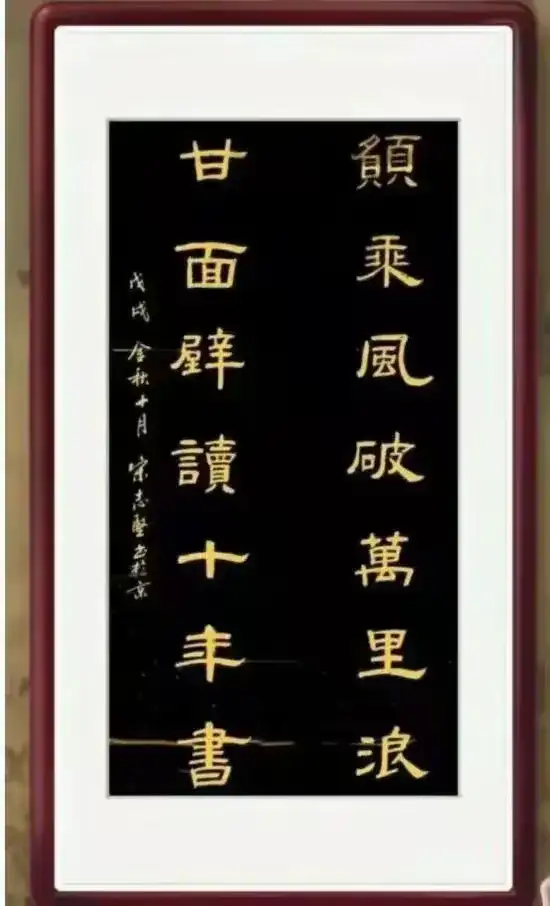 願乘風破萬里浪
甘面壁讀十年書
戊戌金秋十月 宋志堅书於京